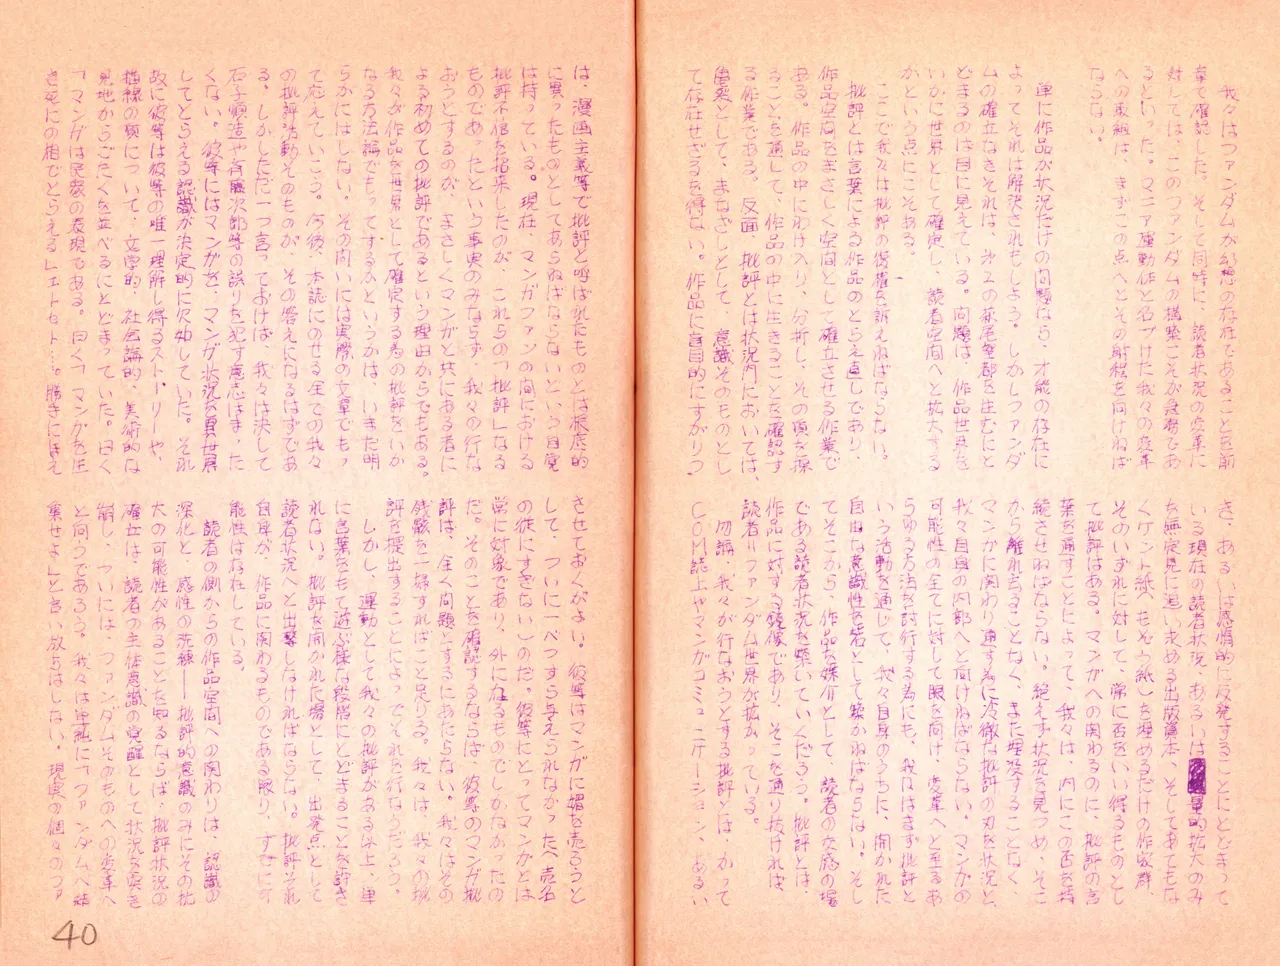 我々はファンダムが幻想の存在であることを前
章で確認した。そして同時に、読者状況の変革に
対しては、このファンダムの構築こそが急務であ
るといった。マニア運動体と名づけた我々の変革
への取組は、まずこの点へとその射程を向けねば
ならない。
単に作品が状況だけの問題なら、才能の存在に
よってそれは解決されもしよう。しかしファンダ
ムの確立なきそれは、第二の萩尾望都を生むにと
どまるのは目に見えている。問題は、作品世界を
いかに世界として確定し、読者空間へと拡大する
かという点にこそある。
ここで我々は批評の復権を訴えねばならない。
批評とは言葉による作品のとらえ直しであり、
作品空間をまさしく空間として確立させる作業で
ある。作品の中にわけ入り、分析し、その頂を探
ることを通して、作品の中に生きることを確認す
る作業である。反面、批評とは状況内においては、
異として、まなざしとして、意識そのものとし
て存在せざるを得ない。作品に盲目的にすがりつ
き、あるいは感情的に反発することにとどまって
いる現在の読者状況、あるいは量的拡大のみ
を無定見に追い求める出版資本、そしてあてもな
くケント紙(もぞう紙)を埋めるだけの作家群、
そのいずれに対して、常に否をいい得るものとし
て批評はある。マンガへの関わるのに、批評の言
葉を通すことによって、我々は、内にこの否を持
続させねばならない。絶えず状況を見つめ、そこ
から離れ去ることなく、また埋没することなく、
マンガに関わり通す為に冷徹な批評の刃を状況と、
我々自身の内部へと向けねばならない。マンガの
可能性の全てに対して眼を向け、変革へと至るあ
らゆる方法を討行する為にも、我々はまず批評と
いう活動を通じて、我々自身のうちに、開かれた
自由な意識性を砦として築かねばならない。そし
てそこから、作品を媒介として、読者の交感の場
である読者状況を築いていくだろう。批評とは、
作品に対する鏡像であり、そこを通り抜ければ
読者=ファンダム世界が拡がっている。
勿論、我々が行なおうとする批評とは、かつて
COM誌上やマンガコミュニケーション、あるい
は、漫画主義等で批評と呼ばれたものとは根底的
に異ったものとしてあらねばならないという自覚
は持っている。現在、マンガファンの間における
批評不信を招来したのが、これらの「批評」なる
ものであったという事実のみならず、我々の行な
おうとするのが、まさしくマンガと共にある者に
よる初めての批評であるという理由からでもある。
我々が作品を世界として確定する為の批評をいか
なる方法論でもってするかというかは、いまだ明
らかにはしない。その問いには実際の文章でもっ
て応えていこう。今後、本誌にのせる全ての我々
の批評活動えのものが、その答えになるはずであ
る。しかしただ一つ言っておけば、我々は決して
石子順造や斉藤次郎等の誤りを犯す意志はまった
くない。彼等にはマンガを、マンガ状況を真世界
してとらえる認識が決定的に欠如していた。それ
故に彼等は彼等の唯一理解し得るストーリーや、
描線の頂について、文学的、社会論的、美術的な
見地からごたくを並べるにとどまっていた。曰く
「マンガは民衆の表現である。曰く「マンガを生
き死にの相でとらえる」エトセトラ…。勝手にほえ
させておくがよい。彼等はマンガに媚を売ろうと
して、ついに一べつすら与えられなかった〈売名
の徒にすぎないのだ。彼等にとってマンガとは
常に対象であり、外になるものでしかなかったの
だ。そのことを確認するならば、彼等のマンガ批
評は、全く問題とするにあたらない。我々はその
残骸を一婦すればこと足りる。我々は、我々の批
評を提出することによってそれを行なうだろう。
しかし、運動として我々の批評がある以上、単
に言葉をもて遊ぶ様は段階にとどまることを許さ
れない。批評を開かれた場として、出発点として
読者状況へと出撃しなければならない。批評それ
自身が、作品に関わるものである限り、すでに可
能性は存在している。
読者の側からの作品空間への関わりは、認識の
深化と、感性の洗練――批評的意識のみにその拡
大の可能性があることを知るならば、批評状況の
確立は、読者の主体意識の覚醒として状況を突き
崩し、ついには、ファンダムそのものへの変革へ
と向うであろう。我々は軍記に「ファンダムへ結
集せよ」と言い放ちはしない。現実の個々のファ
40